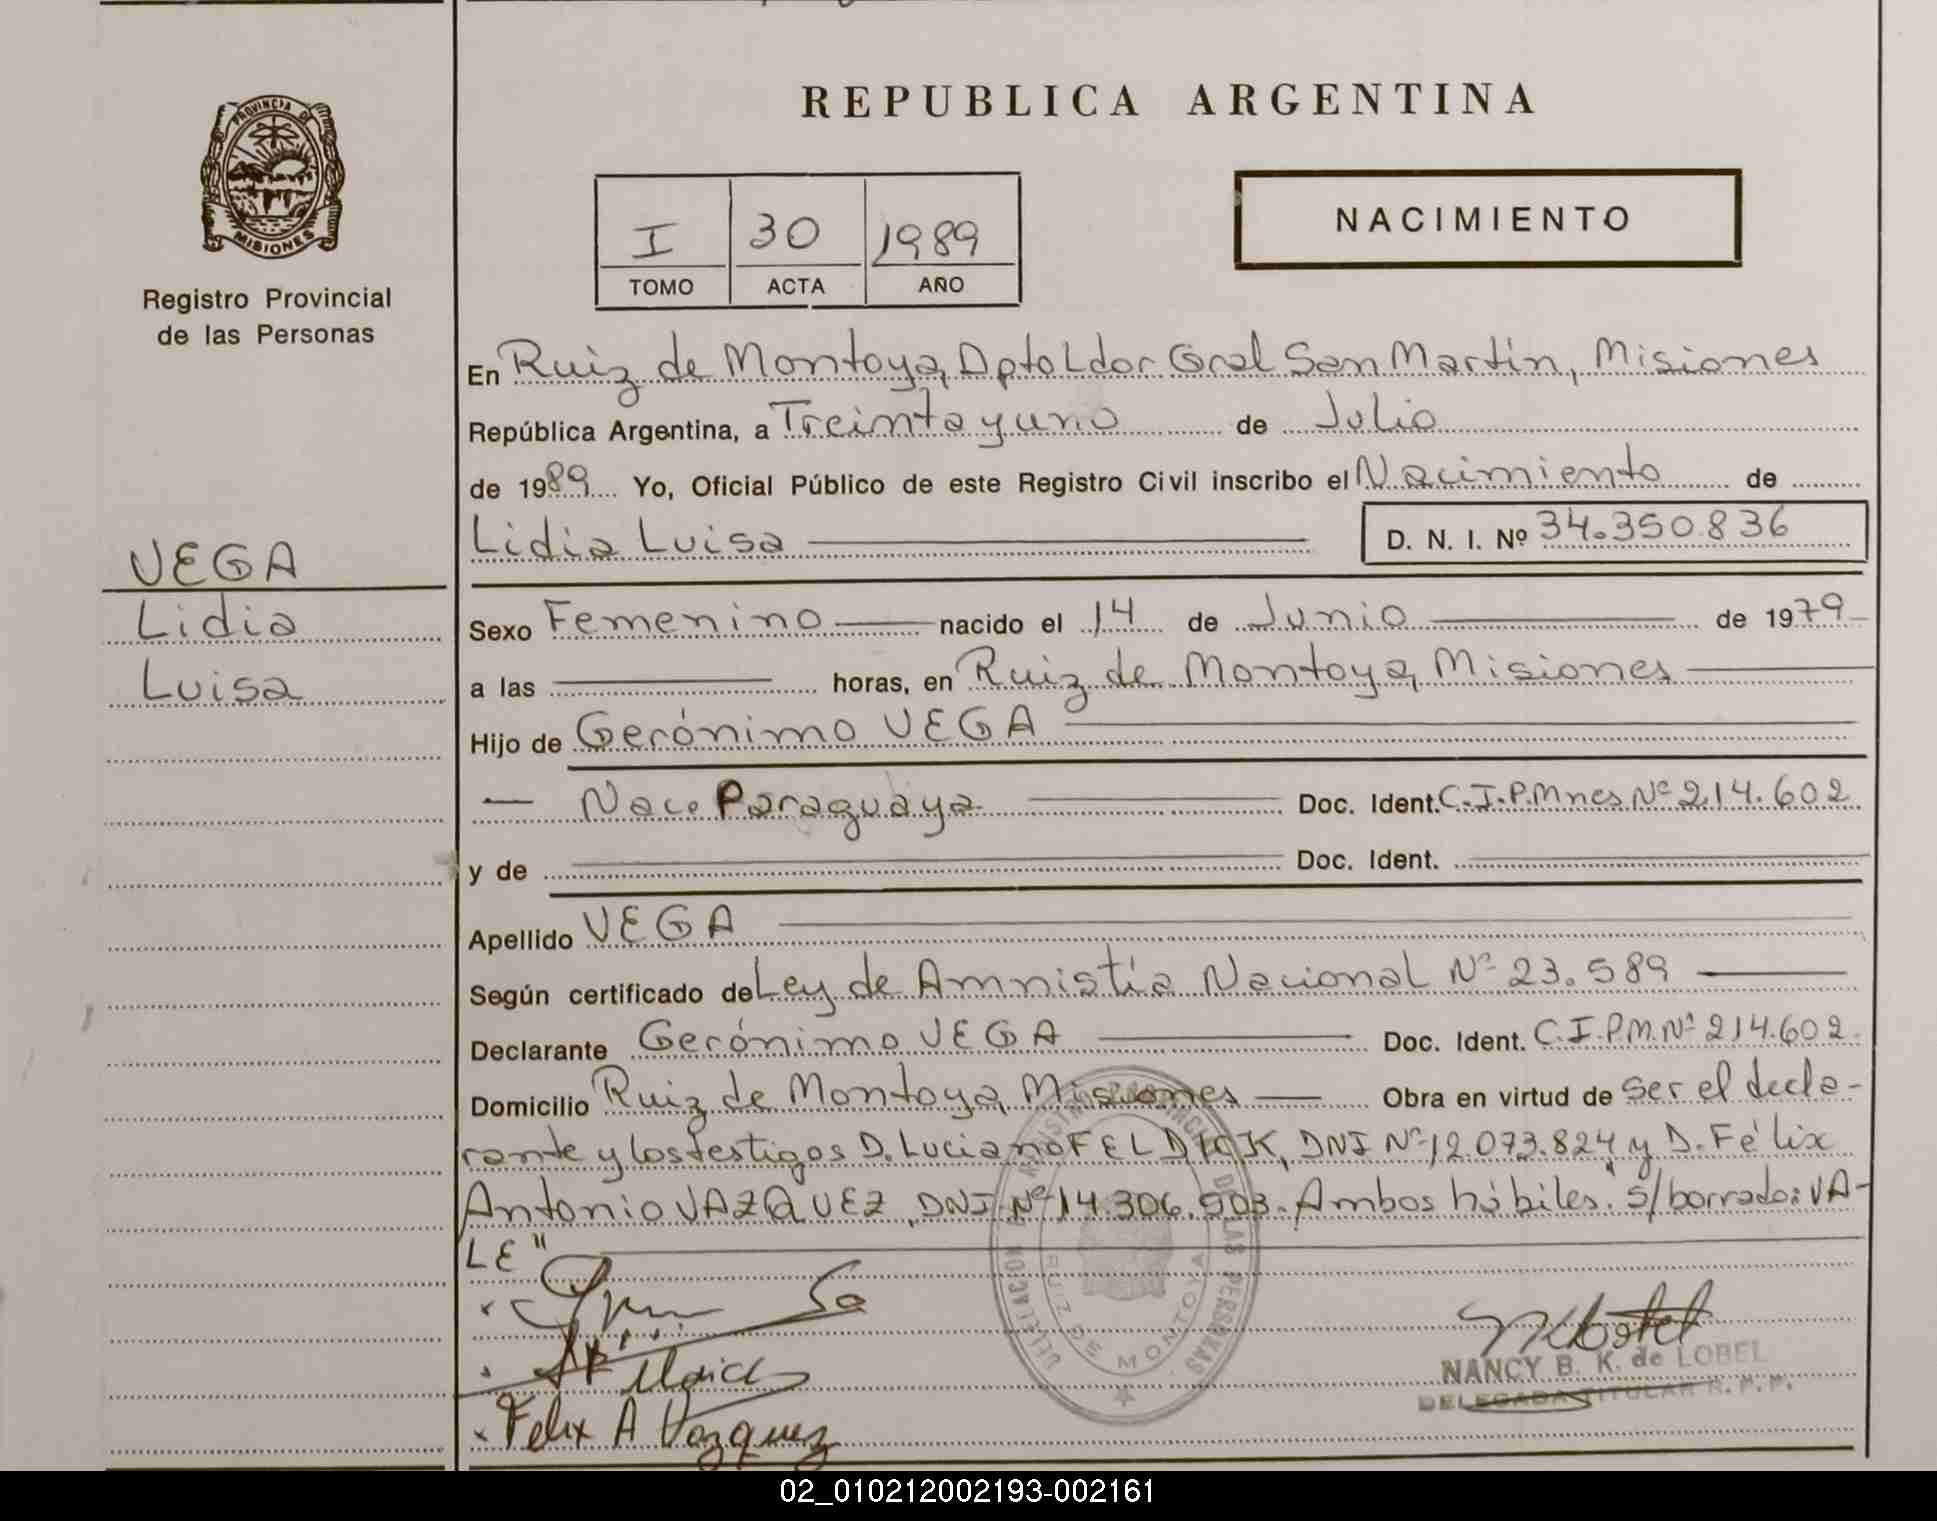 REPUBLICA ARGENTINA
PROVINCIA DE
MISIONES
Registro Provincial
de las Personas
I 30 1989
TOMO ACTA AÑO
NACIMIENTO
En Ruiz de Montoya, Dpto Ldor Gral San Martín, Misiones
República Argentina, a Treinta y uno de Julio
de 1989 Yo, Oficial Público de este Registro Civil inscribo el Nacimiento de
Lidia Luisa D. N. I. Nº 34.350.836
VEGA
Lidia
Luisa
Sexo Femenino nacido el 14 de Junio de 1979
a las horas, en Ruiz de Montoya, Misiones
Hijo de Gerónimo VEGA
Nac. Paraguaya Doc. Ident. C.I.P.Mnes Nº 214.602
y de Doc. Ident.
Apellido VEGA
Según certificado de Ley de Amnistía Nacional Nº 23.589
Declarante Gerónimo VEGA Doc. Ident. C.I.P.M. Nº 214.602
Domicilio Ruiz de Montoya, Misiones Obra en virtud de ser el decla-
rante y los testigos D. Luciano FELDICK, DNI Nº 12.073.824 y D. Félix
Antonio VAZQUEZ, DNI Nº 14.306.503. Ambos hábiles. "S/borrado: VA-
LE"
Felix A Vazquez
DE LAS PERSONAS
DELEGACION
RUIZ DE MONTOYA
NANCY B. K. de LOBEL
DELEGADA TITULAR R. P. P.
02_010212002193-002161